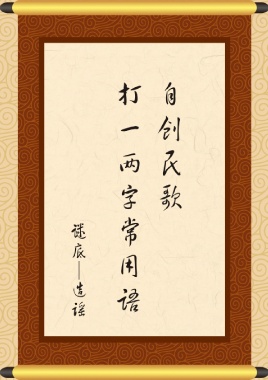 自创民歌
打一两字常用语
谜底——造谣